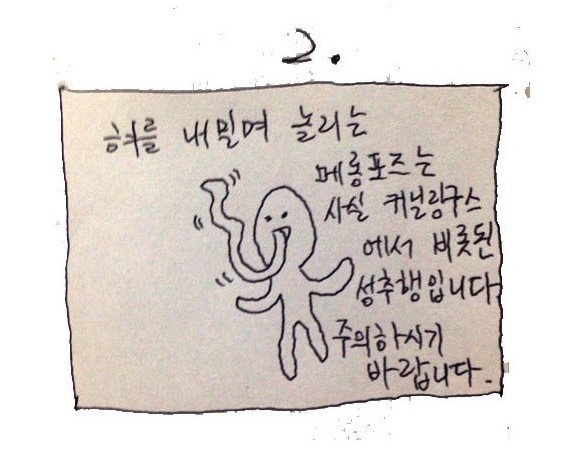 2.
혀를 내밀며 놀리는
메롱포즈는
사실 커닐링구스
에서 비롯된
성추행입니다
주의하시기
바랍니다.